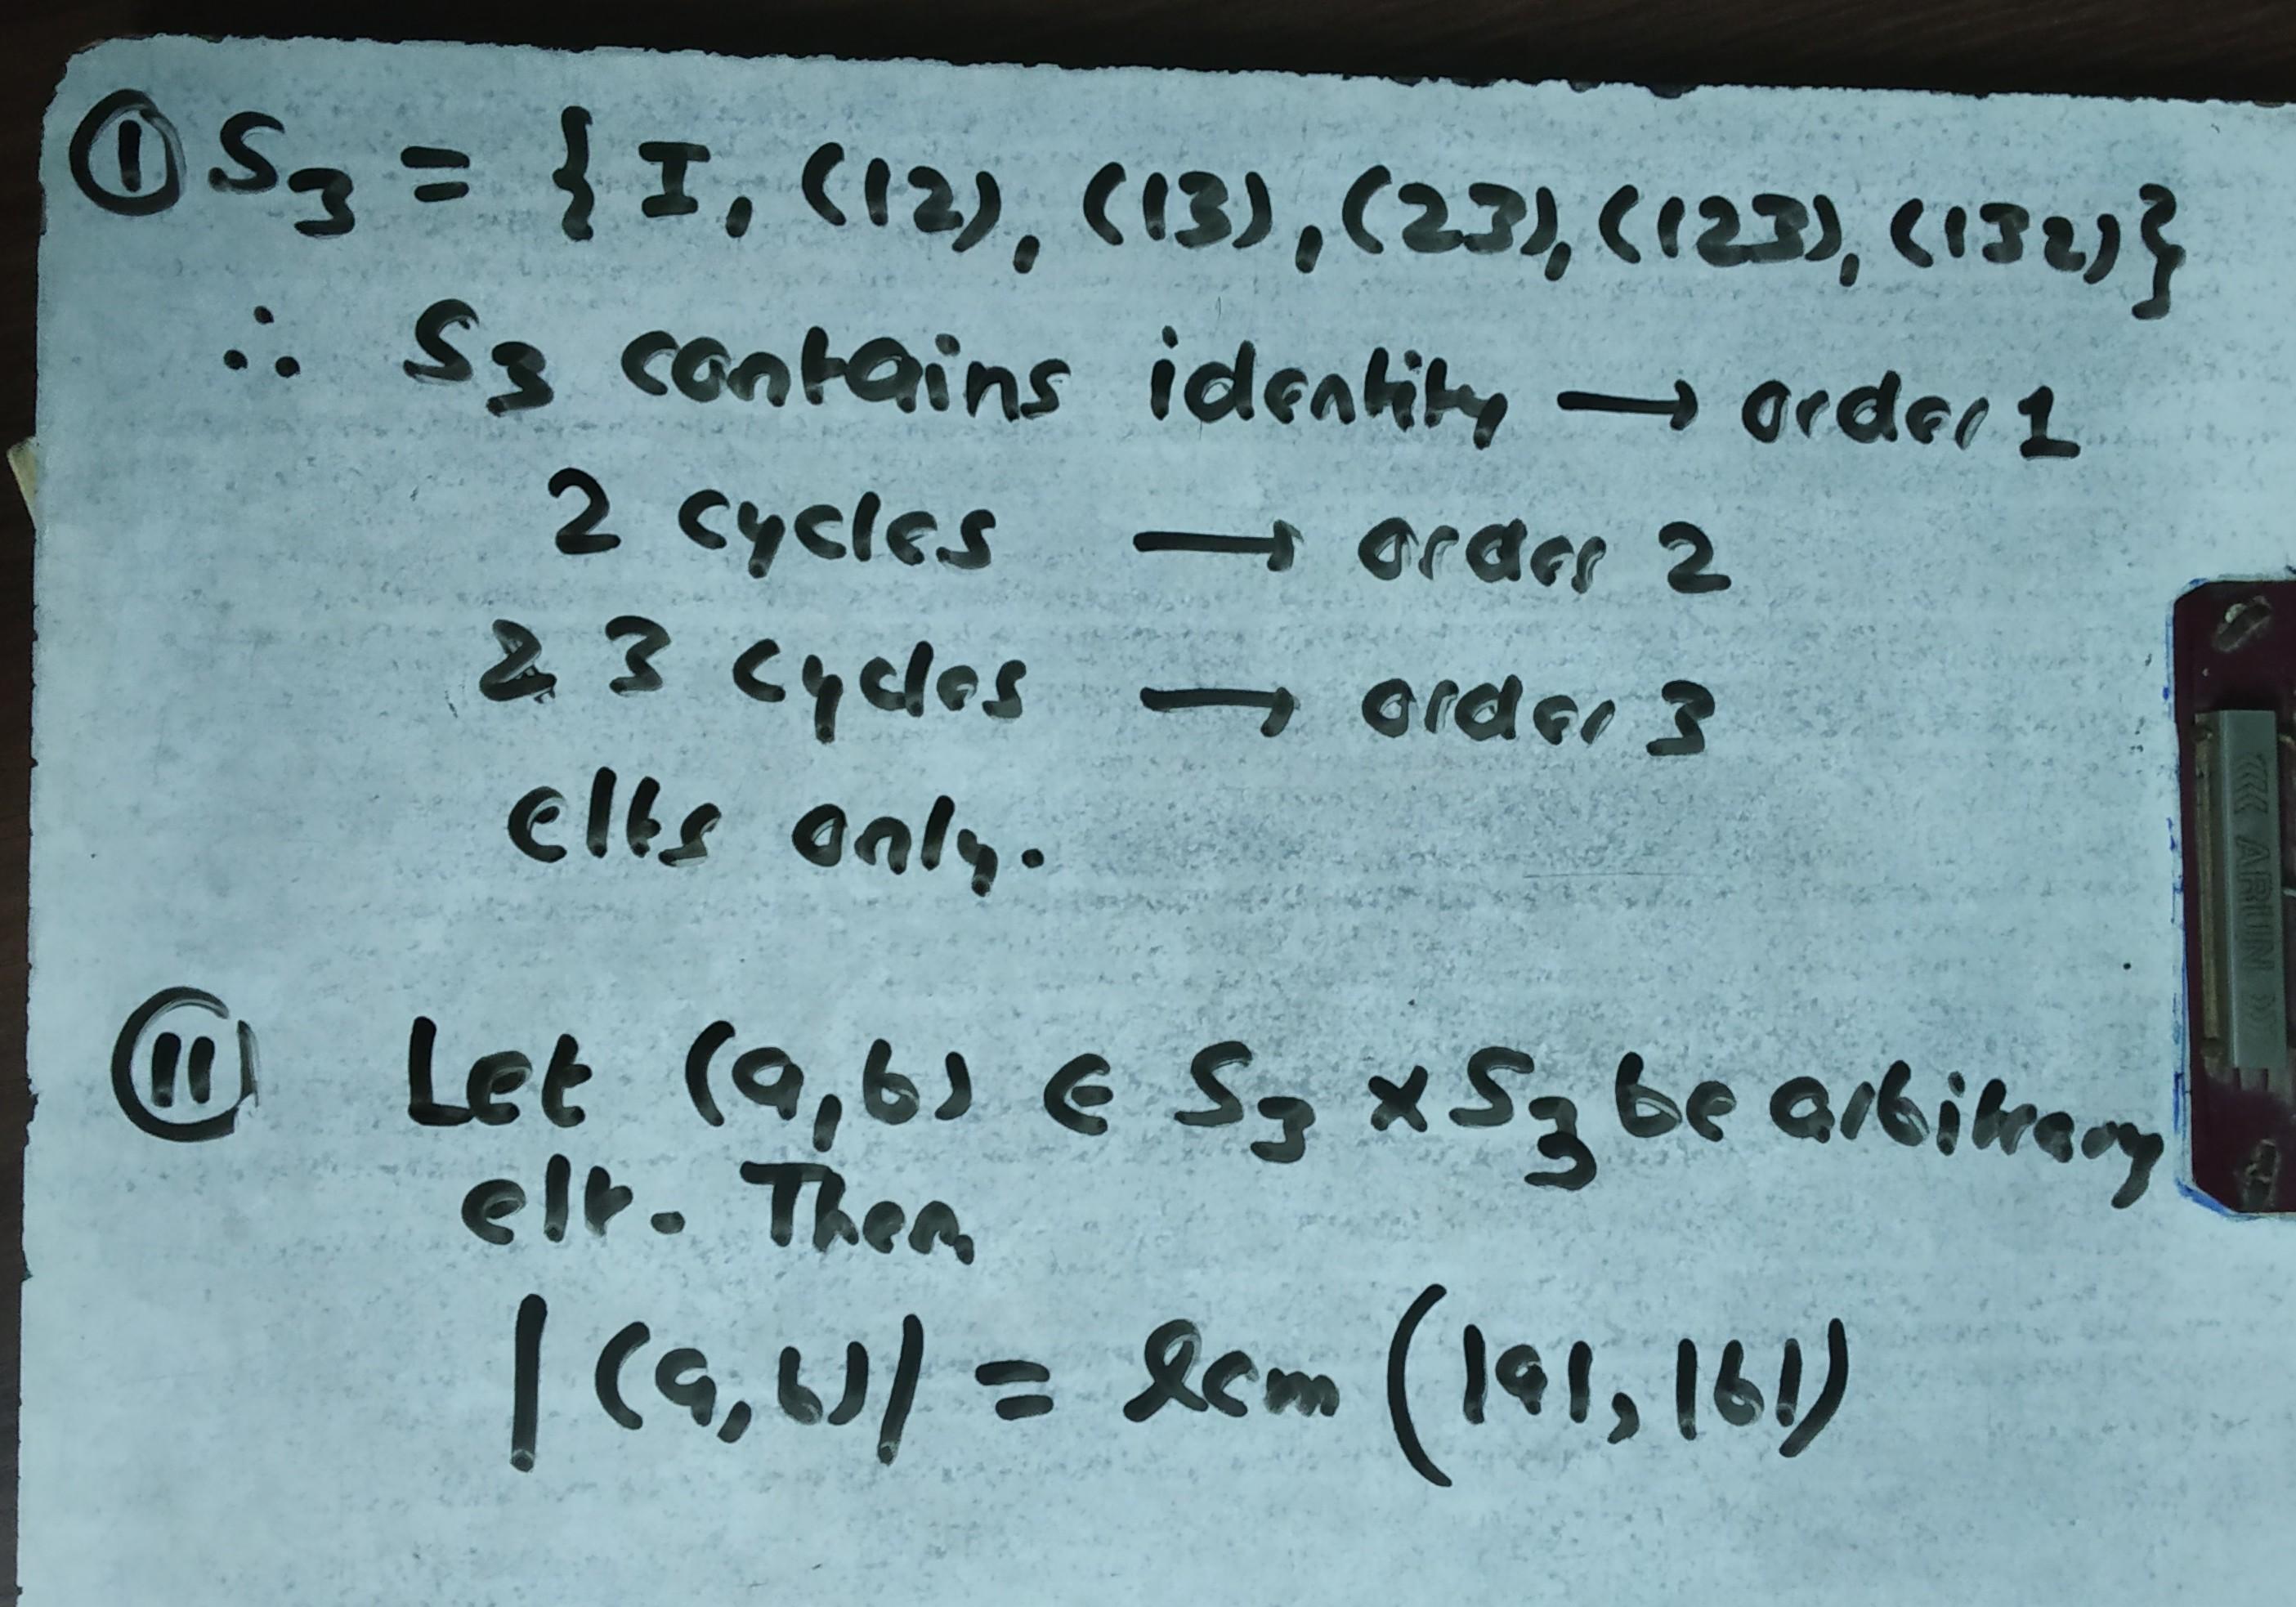 ① S₃ = { I, (12), (13), (23), (123), (132)}
∴ S₃ contains identity → order 1
2 cycles → order 2
2 3 cycles → order 3
elts only.
⑪ Let (a,b) ∈ S₃ × S₃ be arbitrary
elt. Then
|(a,b)| = lcm (|a|, |b|)
««« ARUN »»